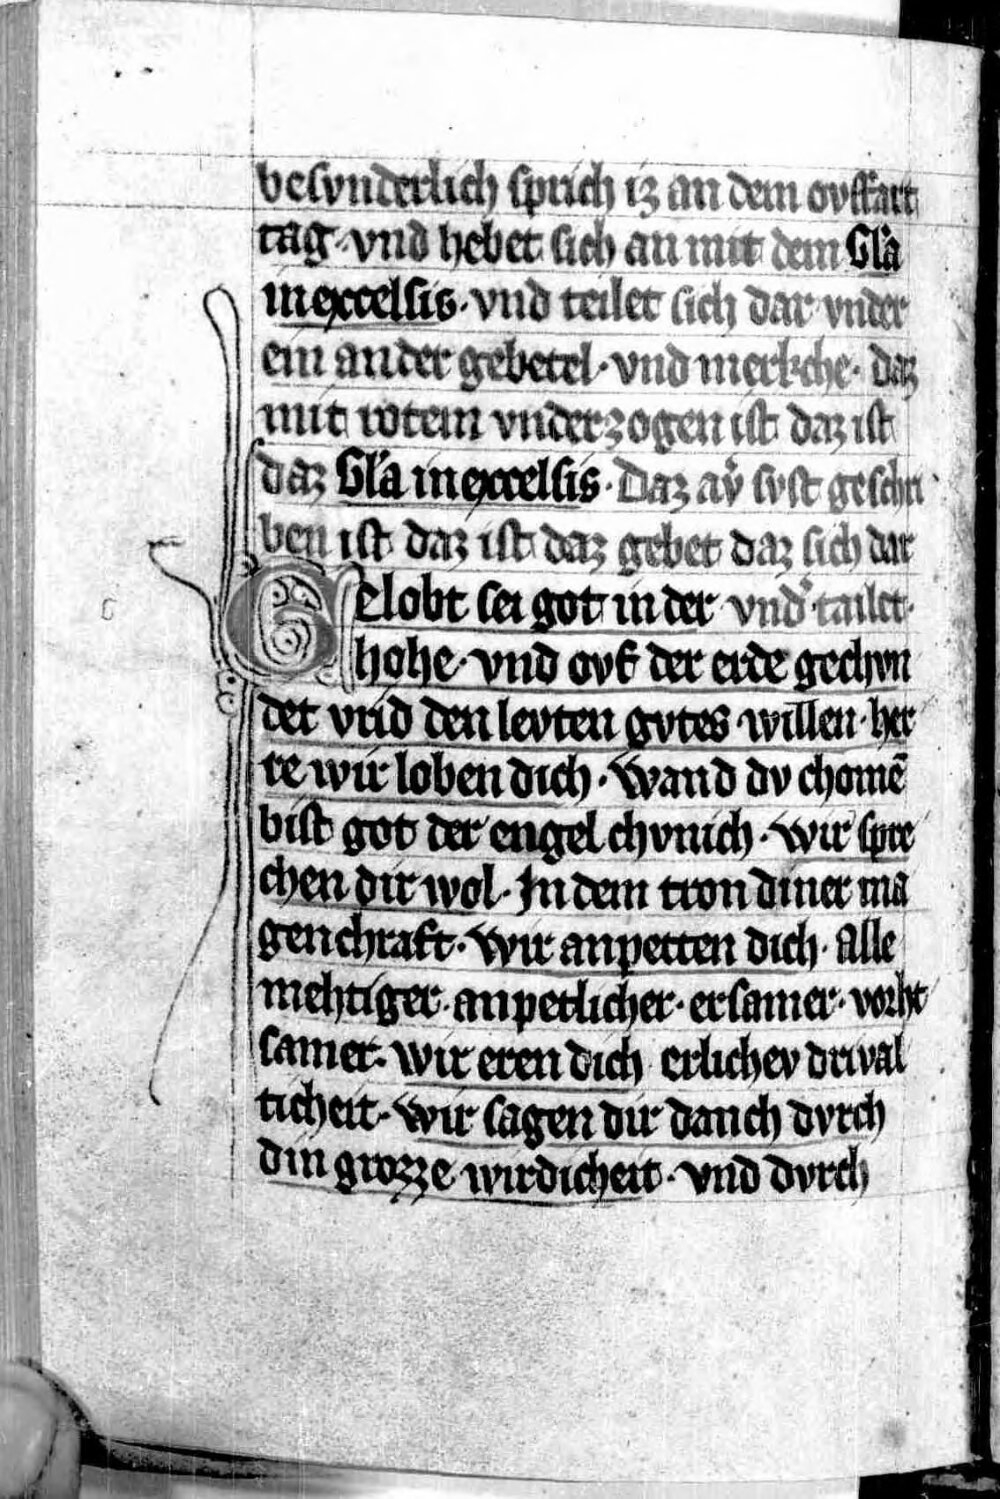 besvnderlich sprich iz an dem ovffart
tag · vnd hebet sich an mit dem Gl'a
in excelsis · vnd teilet sich dar vnder
ein ander gebetel · vnd merkche · daz
mit rotem vnderzogen ist daz ist
daz Gl'a in excelsis · Daz av̂ svst geschri
ben ist daz ist daz gebet daz sich dar
Gelobt sei got in der vnd' tailet ·
hohe · vnd ovf der erde gechvn
det vrid den levten gvtes willen · her
re wir loben dich · Wand dv chomē
bist got der engel chvnich · Wir spre
chen dir wol · In dem tron diner ma
genchraft · Wir anpetten dich · Alle
mehtiger · anpetlicher · ersamer · vorht
samer · wir eren dich erlichev drival
ticheit · Wir sagen dir danch dvrch
din grozze wirdicheit · vnd dvrch